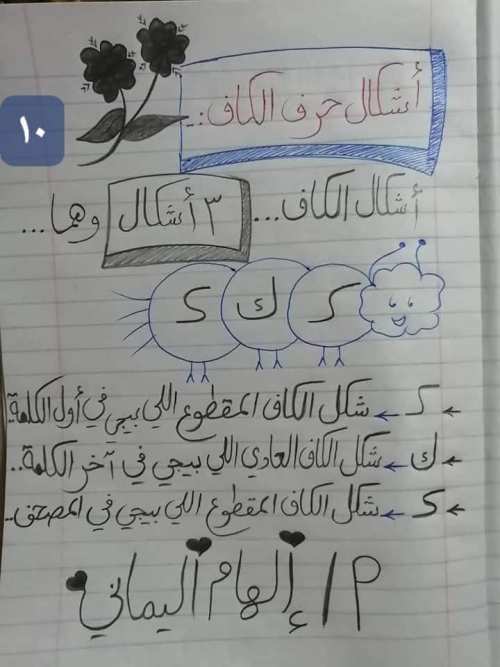 ١٠
أشكال حرف الكاف:..
أشكال الكاف... ٣ أشكال وهما...
ك ك ك
ك ← شكل الكاف المقطوع اللي بيجي في أول الكلمة
ك ← شكل الكاف العادي اللي بيجي في آخر الكلمة..
ك ← شكل الكاف المقطوع اللي بيجي في المصحف..
م / إلهام اليماني